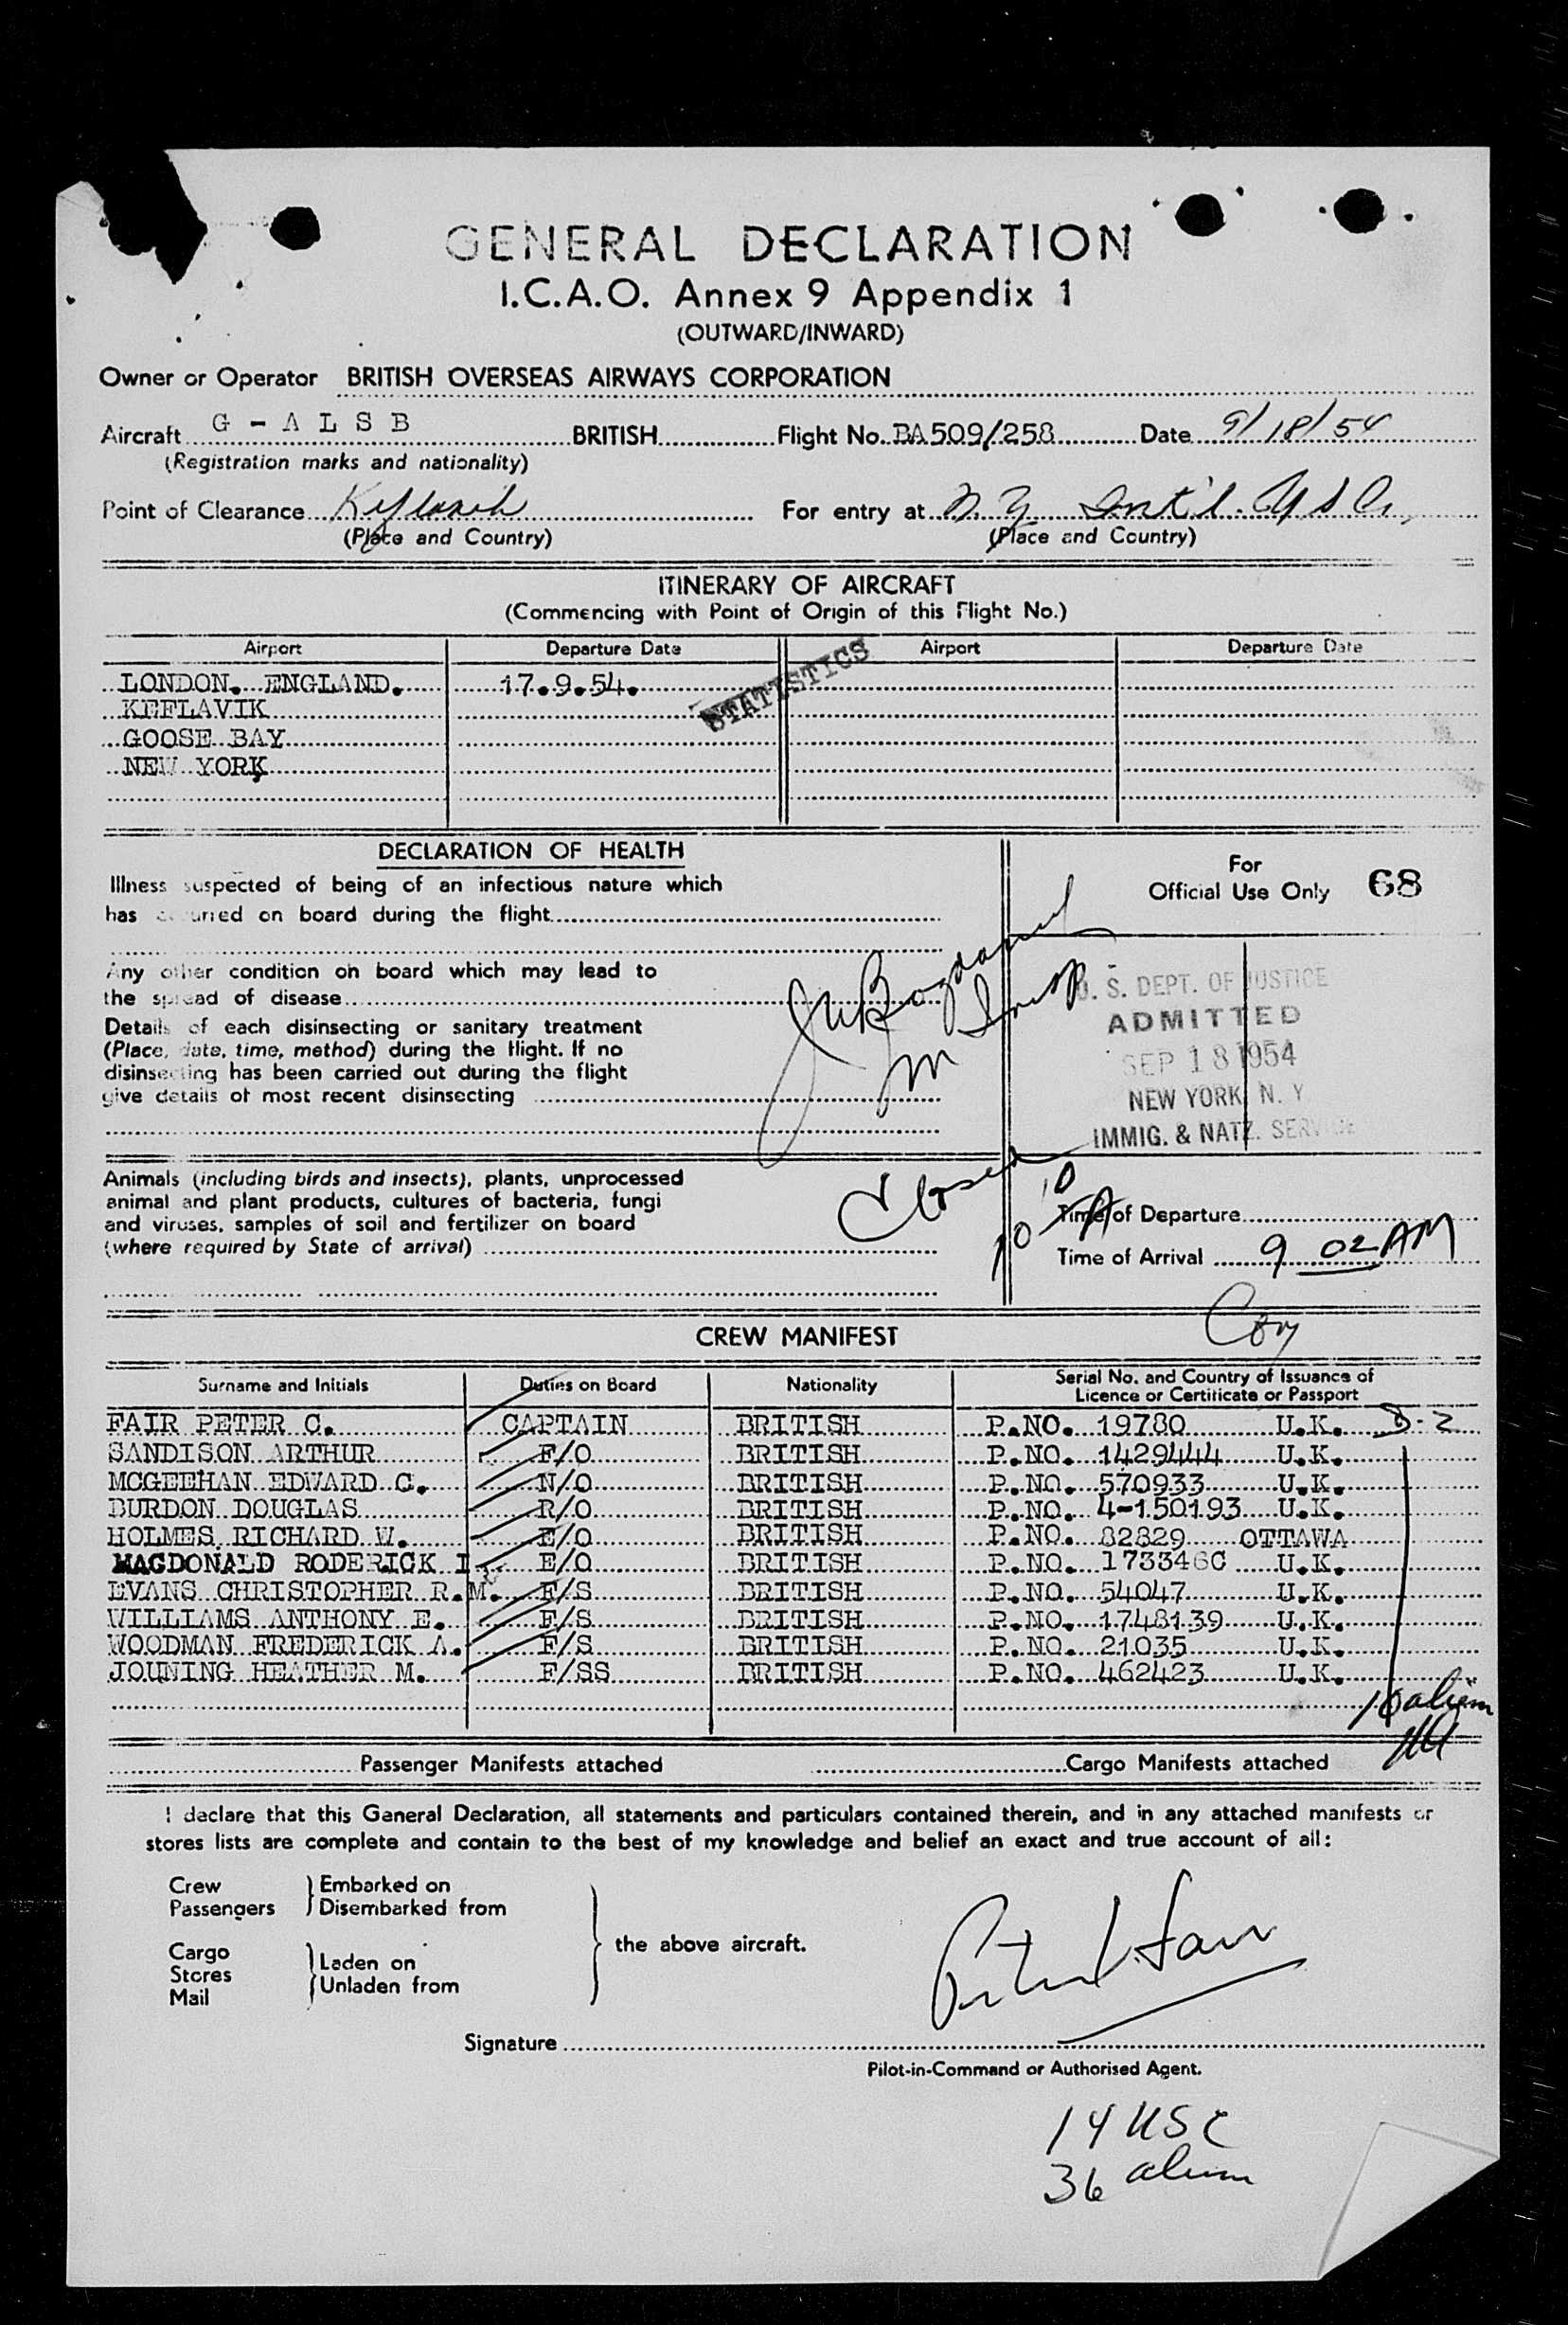 GENERAL DECLARATION
I.C.A.O. Annex 9 Appendix 1
(OUTWARD/INWARD)
Owner or Operator BRITISH OVERSEAS AIRWAYS CORPORATION
Aircraft G - A L S B BRITISH Flight No. BA509/258 Date 9/18/54
(Registration marks and nationality)
Point of Clearance Keflavik For entry at N.Y. Int'l. USA,
(Place and Country) (Place and Country)
ITINERARY OF AIRCRAFT
(Commencing with Point of Origin of this Flight No.)
Airport Departure Date Airport Departure Date
LONDON. ENGLAND. 17.9.54.
KEFLAVIK
GOOSE BAY
NEW YORK
STATISTICS
DECLARATION OF HEALTH
Illness suspected of being of an infectious nature which
has occurred on board during the flight
Any other condition on board which may lead to
the spread of disease
Details of each disinsecting or sanitary treatment
(Place, date, time, method) during the flight. If no
disinsecting has been carried out during the flight
give details of most recent disinsecting
For
Official Use Only 68
U. S. DEPT. OF JUSTICE
ADMITTED
SEP 18 1954
NEW YORK, N. Y.
IMMIG. & NATZ. SERVICE
Animals (including birds and insects), plants, unprocessed
animal and plant products, cultures of bacteria, fungi
and viruses, samples of soil and fertilizer on board
(where required by State of arrival)
Closed
10 10 A
Time of Departure
Time of Arrival 9 02 AM
CREW MANIFEST
Surname and Initials Duties on Board Nationality Serial No. and Country of Issuance of
Licence or Certificate or Passport
FAIR PETER C. CAPTAIN BRITISH P.NO. 19780 U.K. D-2
SANDISON ARTHUR F/O BRITISH P.NO. 1429444 U.K.
MCGEEHAN EDWARD C. N/O BRITISH P.NO. 570933 U.K.
BURDON DOUGLAS R/O BRITISH P.NO. 4-150193 U.K.
HOLMES RICHARD W. E/O BRITISH P.NO. 82829 OTTAWA
MACDONALD RODERICK I E/O BRITISH P.NO. 173346C U.K.
EVANS CHRISTOPHER R.M. F/S BRITISH P.NO. 54047 U.K.
WILLIAMS ANTHONY E. F/S BRITISH P.NO. 1748139 U.K.
WOODMAN FREDERICK A. F/S BRITISH P.NO. 21035 U.K.
JOUNING HEATHER M. F/SS BRITISH P.NO. 462423 U.K.
10 alien
Passenger Manifests attached Cargo Manifests attached
I declare that this General Declaration, all statements and particulars contained therein, and in any attached manifests or
stores lists are complete and contain to the best of my knowledge and belief an exact and true account of all:
Crew Embarked on
Passengers Disembarked from
the above aircraft.
Cargo Laden on
Stores Unladen from
Mail
Signature
Pilot-in-Command or Authorised Agent.
14 USC
36 alien